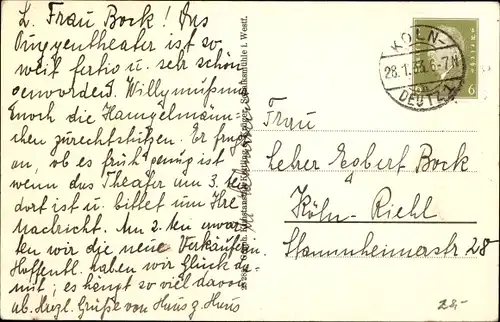 L. Frau Bock! Das
Puppentheater ist so
weit fertig u. sehr schön
geworden. Willy muß nun
noch die Hampelmänn-
chen zurechtstutzen. Er fragt
an, ob es früh genug ist
wenn das Theater am 3. ten
dort ist u. bittet um Ihre
Nachricht. Am 2. ten erwar-
ten wir die neue Verkäuferin
Hoffentl. haben wir Glück da-
mit; es hängt so viel davon
ab. Herzl. Grüße von Haus z. Haus
KÖLN-
28.1.33. 6-7 N
DEUTZ 1
6
Frau
Lehrer Egbert Bock
Köln-Riehl
Stammheimerstr 28